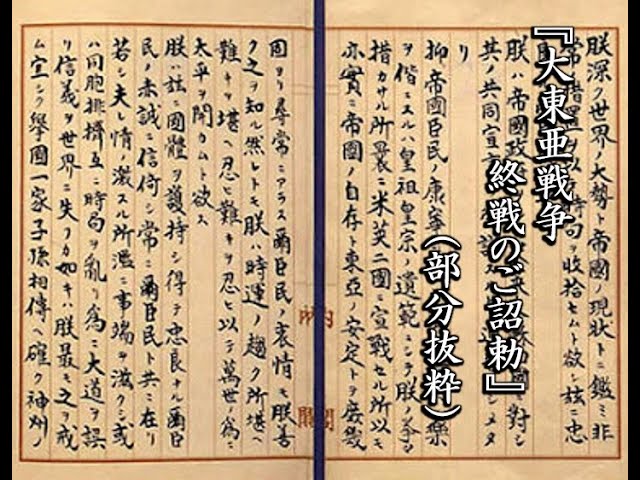 『大東亜戦争
終戦のご詔勅』
(部分抜粋)
朕深ク世界ノ大勢ト帝國ノ現状トニ鑑ミ非
常措置ヲ以テ時局ヲ收拾セムト欲シ茲ニ忠
朕ハ帝國政 對シ
其ノ共同宣 メタ
リ
抑帝國臣民ノ康寧 樂
ヲ偕ニスルハ皇祖皇宗ノ遺範ニシテ朕ノ拳々
措カサル所曩ニ米英二國ニ宣戰セル所以モ
亦實ニ帝國ノ自存ト東亞ノ安定トヲ庶幾
内閣
固ヨリ尋常ニアラス爾臣民ノ衷情モ朕善
ク之ヲ知ル然レトモ朕ハ時運ノ趨ク所堪ヘ
難キヲ堪ヘ忍ヒ難キヲ忍ヒ以テ萬世ノ爲ニ
太平ヲ開カムト欲ス
朕ハ茲ニ國體ヲ護持シ得テ忠良ナル爾臣
民ノ赤誠ニ信倚シ常ニ爾臣民ト共ニ在リ
若シ夫レ情ノ激スル所濫ニ事端ヲ滋クシ或
ハ同胞排擠互ニ時局ヲ亂リ爲ニ大道ヲ誤
リ信義ヲ世界ニ失フカ如キハ朕最モ之ヲ戒
ム宜シク擧國一家子孫相傳ヘ確ク神州ノ